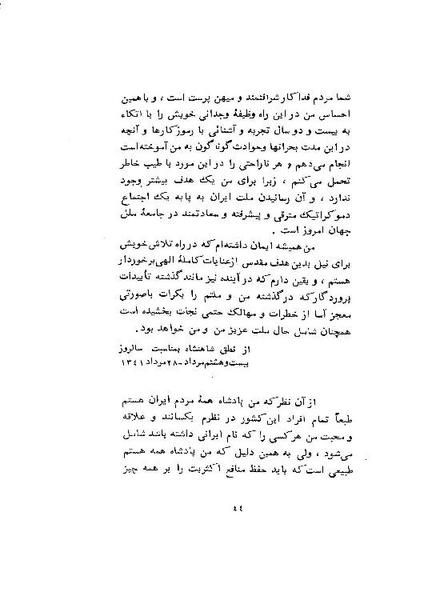 شما مردم فداکار شرافتمند و میهن پرست است ، و با همین
احساس من در این راه وظیفهٔ وجدانی خویش را با اتکاء
به بیست و دو سال تجربه و آشنائی با رموز کارها و آنچه
در این مدت بحرانها و حوادث گوناگون به من آموخته است
انجام می‌دهم و هر ناراحتی را در این مورد با طیب خاطر
تحمل می‌کنم ، زیرا برای من یک هدف بیشتر وجود
ندارد ، و آن رسانیدن ملت ایران به پایه یک اجتماع
دموکراتیک مترقی و پیشرفته و سعادتمند در جامعهٔ ملل
جهان امروز است .
من همیشه ایمان داشته‌ام که در راه تلاش خویش
برای نیل بدین هدف مقدس از عنایات کاملهٔ الهی برخوردار
هستم ، و یقین دارم که در آینده نیز مانند گذشته تأییدات
پروردگار که در گذشته من و ملتم را بکرات با صورتی
معجز آسا از خطرات و مهالک حتمی نجات بخشیده است
همچنان شامل حال ملت عزیز من و من خواهد بود .
از نطق شاهنشاه بمناسبت سالروز
بیست و هشتم مرداد - ۲۸ مرداد ۱۳۴۱
از آن نظر که من پادشاه همه مردم ایران هستم
طبعاً تمام افراد این کشور در نظرم یکسانند و علاقه
و محبت من هر کسی را که نام ایرانی داشته باشد شامل
می‌شود ، ولی به همین دلیل که من پادشاه همه هستم
طبیعی است که باید حفظ منافع اکثریت را بر همه چیز
۴۴